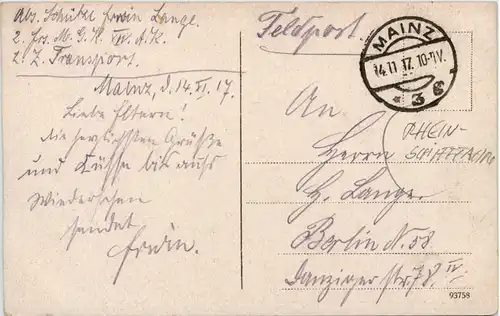 Abs. Schütze Erwin Lange
2. Ers. M. G. K. XIV. A. K.
2. Z. Transport.
Mainz, d. 14. XI. 17.
Liebe Eltern!
die herzlichsten Grüße
und Küsse bis aufs
Wiedersehen
sendet
Erwin.
Feldpost.
MAINZ
14.11.17. 10-11V.
* 3 c
An
Herrn
RHEIN-
H. Lange.
Berlin N. 58
Danziger Str. 78 IV.
93758